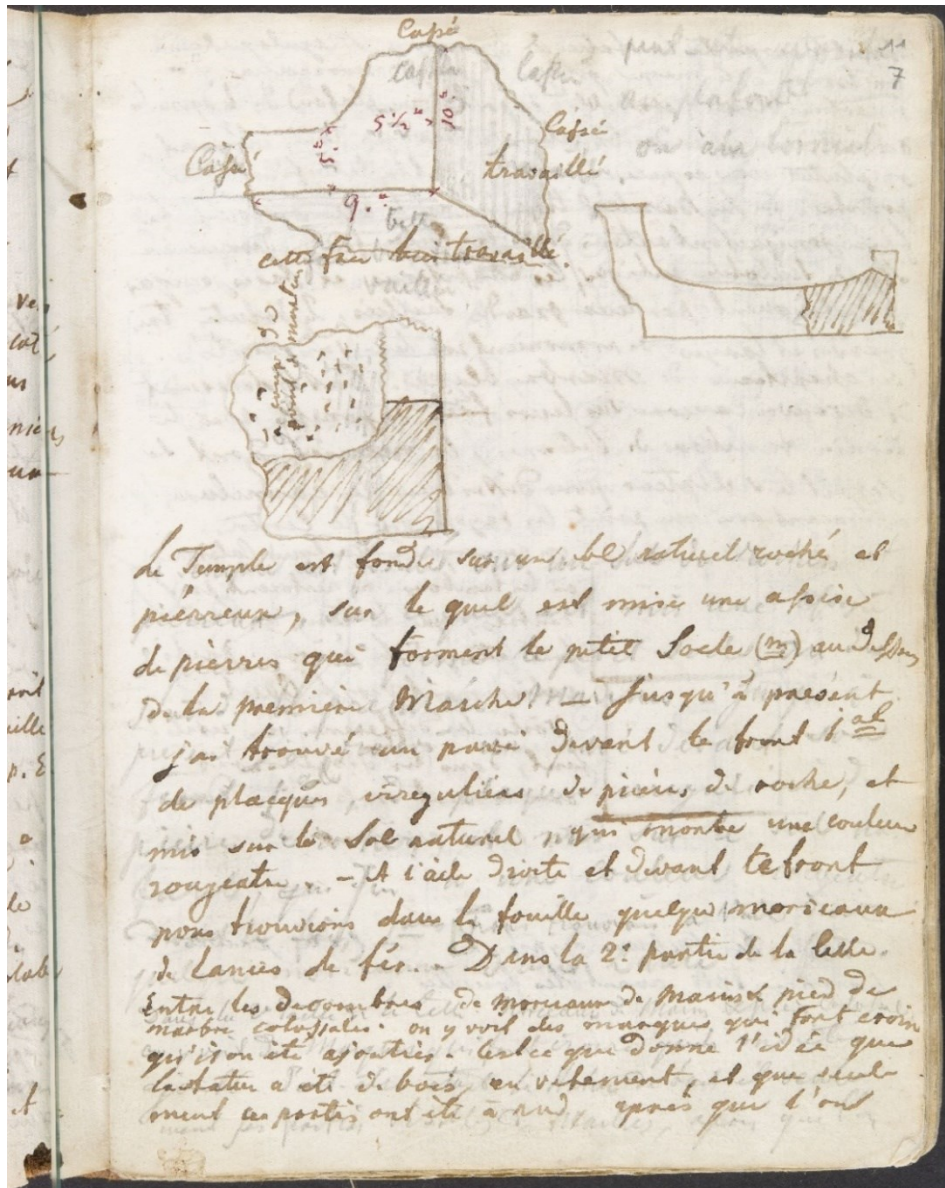 11
7
Cassé
Cassé
Cassé
Cassé
5½"
10"
Cassé
travaillé
5"
9."
cette face bien travaillé.
le Temple est fondé sur un sol naturel rochés et
piérreux, sur le quel est mise une assise
de pièrres qui forment le petit Socle (m) au dessous
de la première Marche. — Jusqu'à présent
j'ai trouvé un pavé devant le front
de placques irreguliers de pièrres de roche, et
mis sur le Sol naturel qui montre une couleur
rougeatre. — A l'aile droite et devant le front
nous trouvions dans la fouille quelque morceaux
de Lances de fér. Dans la 2e partie de la Celle.
Entre les decombres de morceaux de Mains & pied de
marbre colossales. on y voit des marques qui font croir
qu'is on été ajoutées. c'est ce que donne l'idée que
la statue a été de bois, en vêtement, et que seule
ment ces partis ont été à nud après que l'ont